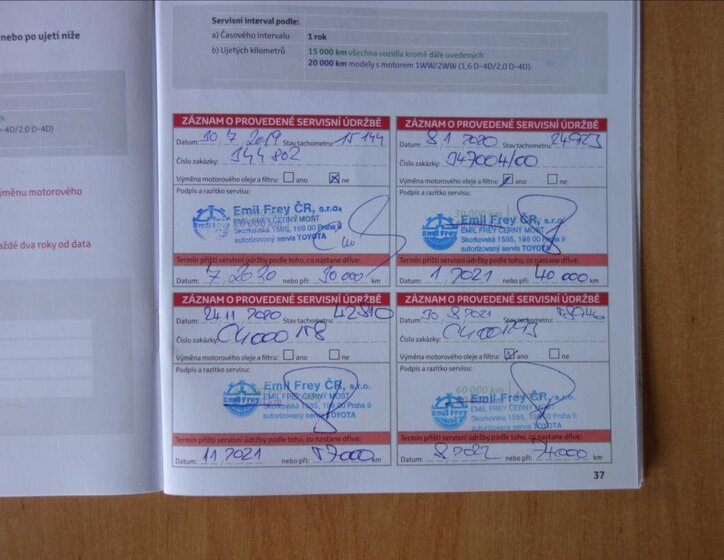 nebo po ujetí níže
-4D/2,0 D-4D)
ýměnu motorového
aždé dva roky od data
Servisní interval podle:
a) Časového intervalu 1 rok
b) Ujetých kilometrů 15 000 km všechna vozidla kromě dále uvedených
20 000 km modely s motorem 1WW/2WW (1,6 D-4D/2,0 D-4D)
ZÁZNAM O PROVEDENÉ SERVISNÍ ÚDRŽBĚ
Datum: 10, 7, 2019 Stav tachometru: 15 144
Číslo zakázky: 344802
Výměna motorového oleje a filtru: ano ne
Podpis a razítko servisu:
Emil Frey ČR, s.r.o.
EMIL FREY ČERNÝ MOST
Skorkovská 1585, 198 00 Praha 9
autorizovaný servis TOYOTA
Emil Frey
Termín příští servisní údržby podle toho, co nastane dříve:
Datum: 7, 2020 nebo při: 30 000 km
ZÁZNAM O PROVEDENÉ SERVISNÍ ÚDRŽBĚ
Datum: 8 1 2020 Stav tachometru: 24923
Číslo zakázky: 347004/00
Výměna motorového oleje a filtru: ano ne
Podpis a razítko servisu:
Emil Frey ČR, s.r.o.
EMIL FREY ČERNÝ MOST
Skorkovská 1585, 198 00 Praha 9
autorizovaný servis TOYOTA
Emil Frey
Termín příští servisní údržby podle toho, co nastane dříve:
Datum: 1, 2021 nebo při: 40 000 km
ZÁZNAM O PROVEDENÉ SERVISNÍ ÚDRŽBĚ
Datum: 24 11 2020 Stav tachometru: 42810
Číslo zakázky:
Výměna motorového oleje a filtru: ano ne
Podpis a razítko servisu:
Emil Frey ČR, s.r.o.
EMIL FREY ČERNÝ MOST
Skorkovská 1585, 198 00 Praha 9
autorizovaný servis TOYOTA
Emil Frey
Termín příští servisní údržby podle toho, co nastane dříve:
Datum: 11, 2021 nebo při: 57000 km
ZÁZNAM O PROVEDENÉ SERVISNÍ ÚDRŽBĚ
Datum: 8, 2021 Stav tachometru:
Číslo zakázky:
Výměna motorového oleje a filtru: ano ne
Podpis a razítko servisu:
60 000 km
Emil Frey ČR, s.r.o.
EMIL FREY ČERNÝ MOST
Skorkovská 1585, 198 00 Praha 9
autorizovaný servis TOYOTA
Emil Frey
Termín příští servisní údržby podle toho, co nastane dříve:
Datum: 8 2022 nebo při: 74000 km
37